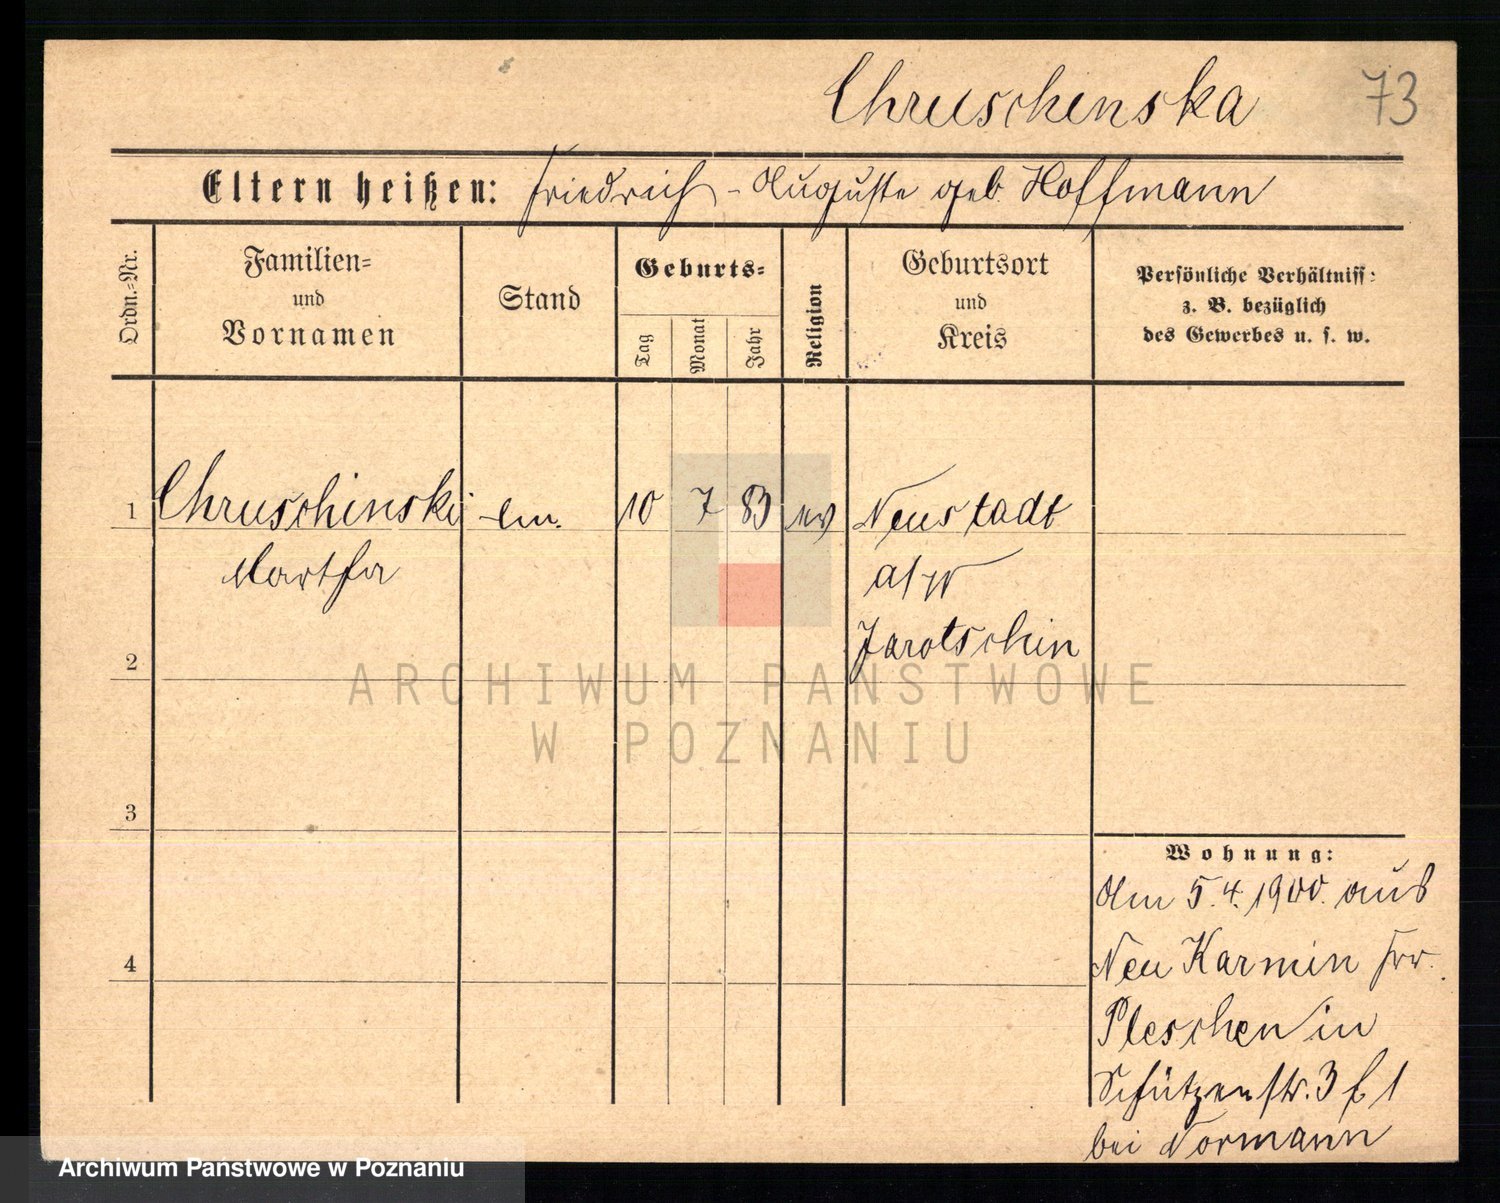 Chruschenska 73
Eltern heißen: Friedrich - Auguste geb. Hoffmann
Ordn.-Nr.
Familien-
und
Vornamen
Stand
Geburts-
Tag
Monat
Jahr
Religion
Geburtsort
und
Kreis
Persönliche Verhältniss:
z. B. bezüglich
des Gewerbes u. s. w.
1 Chruschinski 10 7 83 ev Neustadt
Martha a/W
Jarotschin
2
3
4
Wohnung:
Am 5.4.1900. aus
Neu Karmin
Pleschen in
Schützenstr. 3
bei Normann
ARCHIWUM PAŃSTWOWE
W POZNANIU
Archiwum Państwowe w Poznaniu